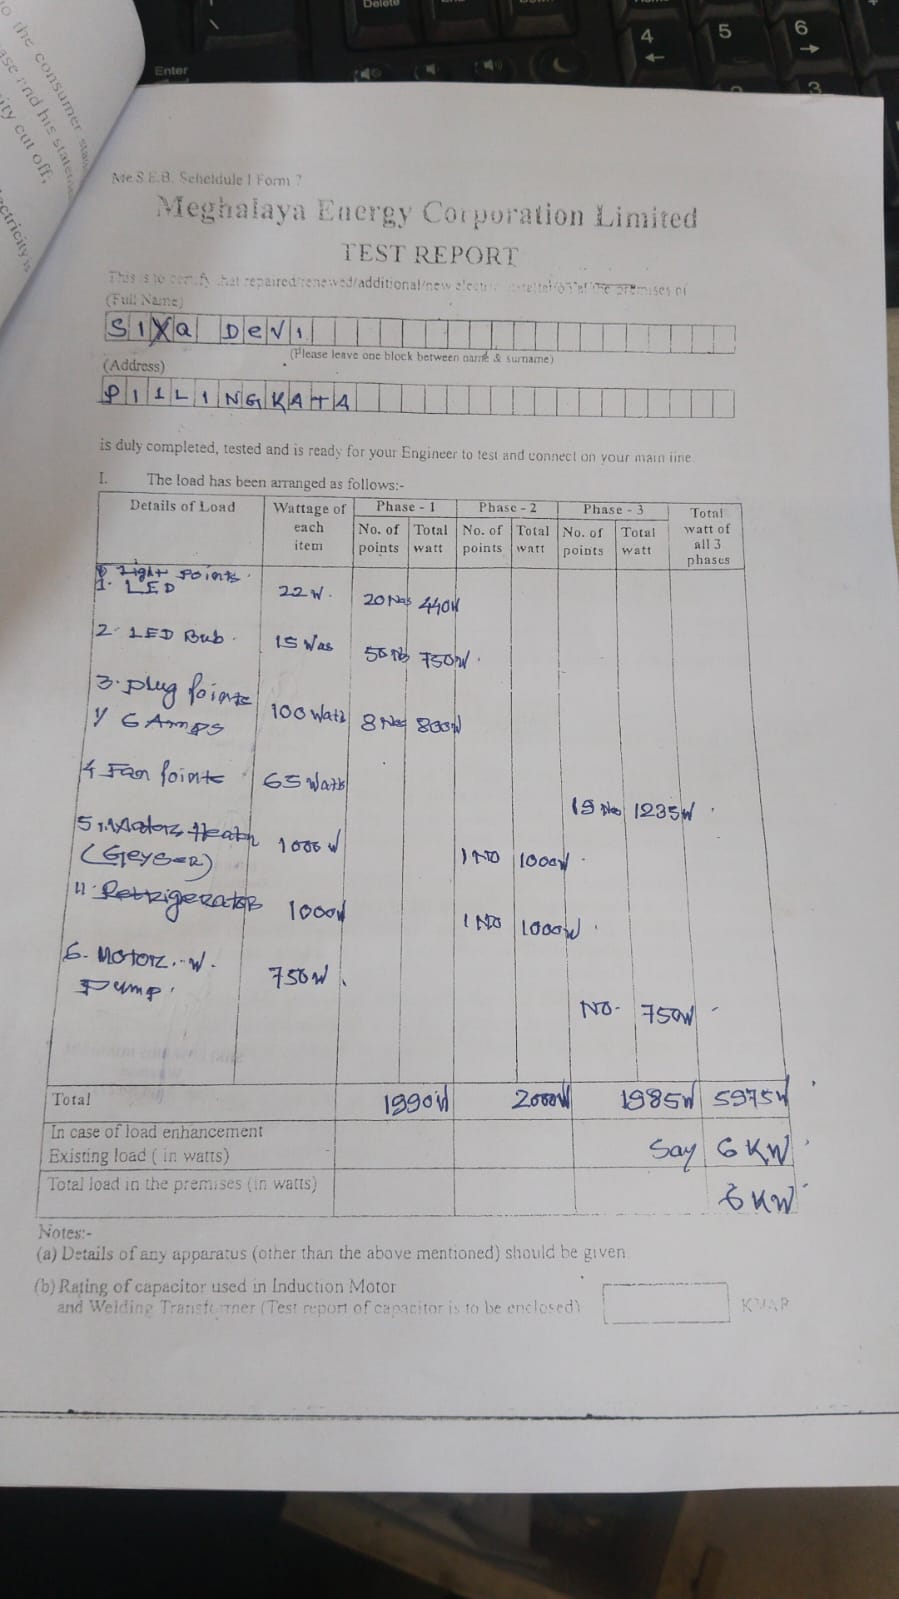 to the consumer
and his
ity cut off,
ectricity is
Delete
\
Enter
4
5
6
3
Me.S.E.B. Scheldule I Form 7
Meghalaya Energy Corporation Limited
TEST REPORT
This is to certify that repaired/renewed/additional/new electric installation at the premises of
(Full Name)
DeVi
(Please leave one block between name & surname)
(Address)
PILLINGKATA
is duly completed, tested and is ready for your Engineer to test and connect on your main line.
I. The load has been arranged as follows:-
Details of Load Wattage of each item Phase - 1 Phase - 2 Phase - 3 Total watt of all 3 phases
No. of points Total watt No. of points Total watt No. of points Total watt
Light Points.
1. LED 22 W. 20 Nos 440W
2. LED Bub. 15 Was 50 No 750W.
3. plug points
6 Amps 100 Watt 8 Nos 800W
4 Fan points 65 Watts 19 No 1235W
5. Heatr
(GeYSeR) 1000 W 1 NO 1000W
11. Refrigerator 1000W 1 NO 1000W
6. Motor W.
Pump. 750W NO. 750W
Total 1990W 2000W 1985W 5975W
In case of load enhancement
Existing load ( in watts) Say 6 KW
Total load in the premises (in watts) 6 KW
Notes:-
(a) Details of any apparatus (other than the above mentioned) should be given.
(b) Rating of capacitor used in Induction Motor
and Welding Transformer (Test report of capacitor is to be enclosed) KVAR